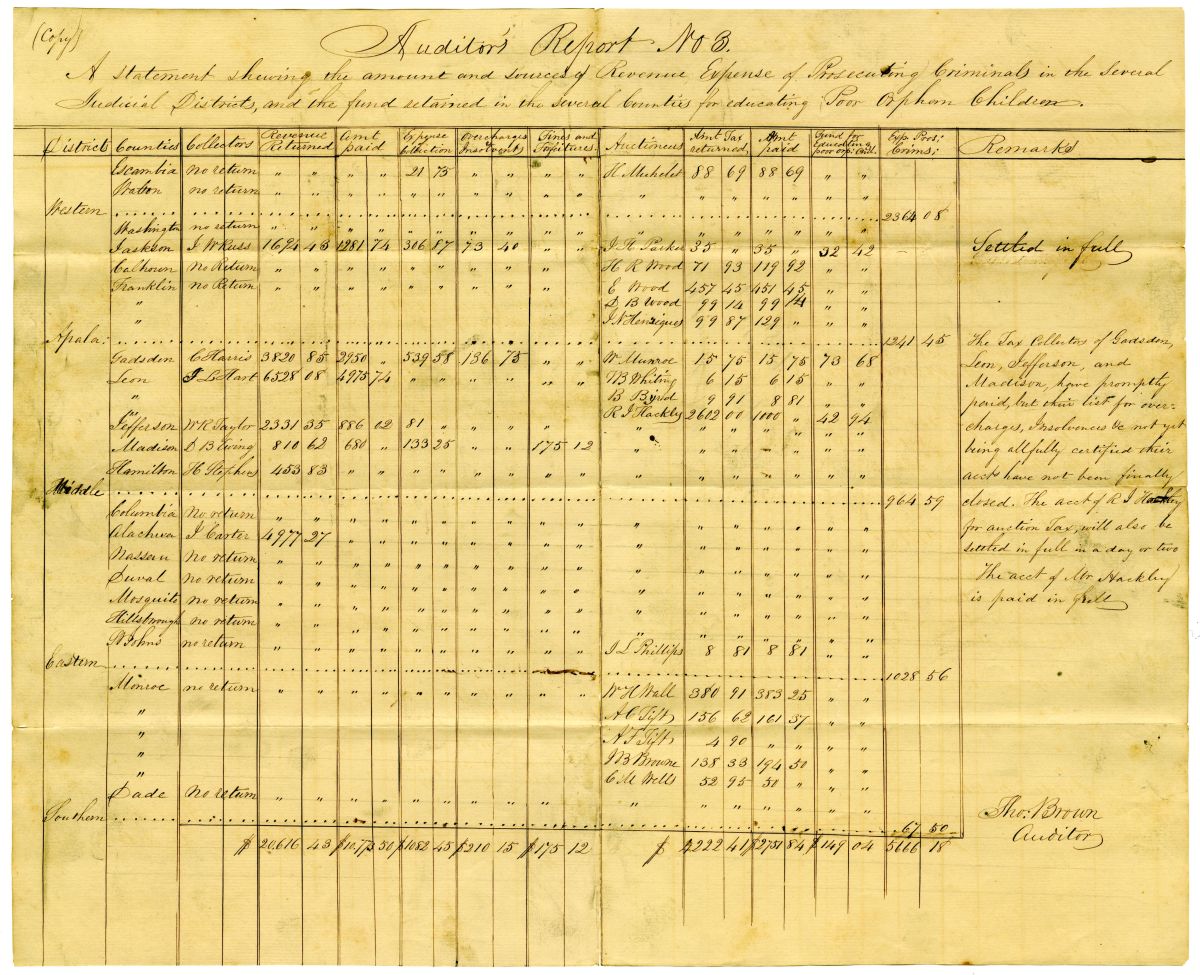 (Copy)
Auditor's Report No 3.
A statement shewing the amount and sources of Revenue Expense of Prosecuting Criminals in the Several
Judicial Districts, and the fund retained in the several Counties for educating Poor Orphern Children.
District Counties Collectors Revenue Returned Amt paid Expense Collection Overcharges Insolvents Fines and Forfeitures. Auctineers Amt Tax returned, Amt paid Fund for Educating poor orp: Chil. Exp. Pros: Crims; Remarks
Escambia no return " " " " 21 75 " " " " H Michelet 88 69 88 69 " "
Walton no return " " " " " " " " " " " " " " " " "
Western 2364 08
Washington no return " " " " " " " " " " " " " " " " "
Jackson J W Russ 1694 43 1281 74 306 87 73 40 " " J H Packer 35 " 35 " 32 42 Settled in full
Calhoun No Return " " " " " " " " " " H R Wood 71 93 119 92 " "
Franklin no Return " " " " " " " " " " E Wood 457 45 451 45 " "
" D B Wood 99 14 99 14 " "
" J N Henriques 99 87 129 " " "
Apala: 1241 45 The Tax Collectors of Gadsden,
Gadsden C Harris 3820 85 2950 " 539 58 136 75 " " W Munroe 15 75 15 75 73 68 Leon, Jefferson, and
Leon J L Hart 6528 08 4975 74 " " " " " " W B Whiting 6 15 6 15 " " Madison, have promptly
" B Byrd 9 91 8 81 " " paid, but their list for over-
" R J Hackley 2602 00 1000 " 42 94
Jefferson W R Taylor 2331 35 886 02 81 " " " " " " " " " " " " charges, Insolvences &c not yet
Madison D B Ewing 810 62 680 " 133 25 " " 175 12 " " " " " " " being all fully certified their
Hamilton H Stephens 453 83 " " " " " " " " " " " " " " " acct have not been finally
Middle 964 59 closed. The acct of R J Hackley
Columbia No return " " " " " " " " " " " " " " " " "
Alachua J Carter 4977 27 " " " " " " " " " " " " " " " for auction Tax, will also be
Nassau no return " " " " " " " " " " " " " " " " " settled in full in a day or two
Duval no return " " " " " " " " " " " " " " " " " The acct of Mr Hackley
Mosquito no return " " " " " " " " " " " " " " " " " is paid in full
Hillsbrough no return " " " " " " " " " " " " " " " " "
St Johns no return " " " " " " " " " " J L Phillips 8 81 8 81 " "
Eastern 1028 56
Monroe no return " " " " " " " " " " W H Wall 380 91 383 25 " "
" A C Tift 156 62 161 37 " "
" A F Tift 4 90 " " " "
" J B Browne 138 33 194 50 " "
" C M Wells 52 95 50 " " "
Dade No return " " " " " " " " " " " " " " " " "
Southern 67 50
$ 20,616 43 $10,773 50 $1082 45 $210 15 $175 12 $ 4222 41 $2751 84 $149 04 5666 18
Tho. Brown
Auditor